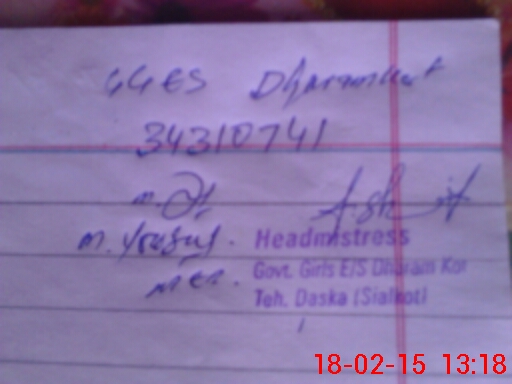 GGES Dharamkot
34310741
M. Yousuf.
MEA.
Headmistress
Govt. Girls E/S Dharam Kot
Teh. Daska (Sialkot)
18-02-15 13:18